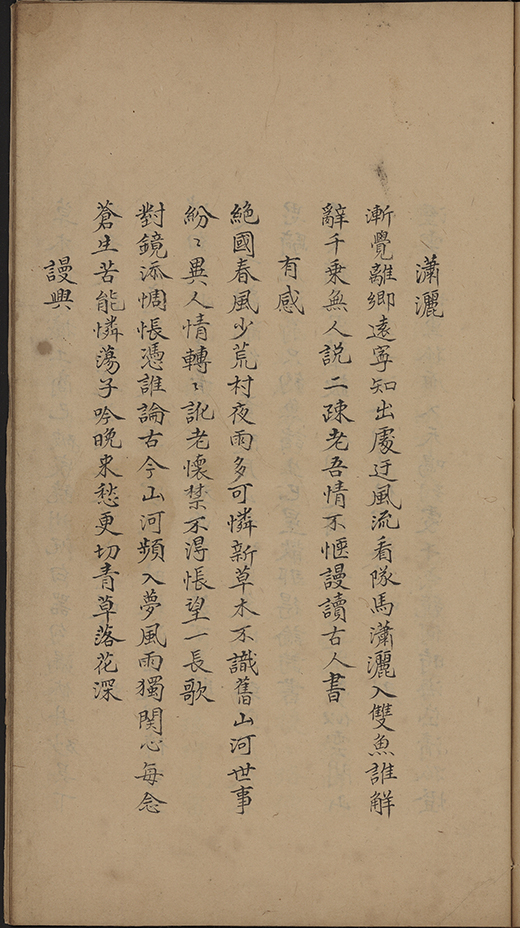 瀟灑
漸覺離鄉遠寧知出處迂風流看隊馬瀟灑入雙魚誰解
辭千乘無人說二疎老吾情不愜謾讀古人書
有感
絕國春風少荒村夜雨多可憐新草木不識舊山河世事
紛〻異人情轉〻訛老懷禁不得悵望一長歌
對鏡添惆悵憑誰論古今山河頻入夢風雨獨関心每念
蒼生苦能憐蕩子吟晚来愁更切青草落花深
謾興